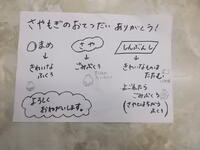 さやもぎのおてつだい ありがとう！
まめ
↓
きれいな
ふくろ
さや
↓
ごみぶくろ
しんぶんし
↓
きれいなものは
たたむ
よごれたら
ごみぶくろ
よろしく
おねがいします。